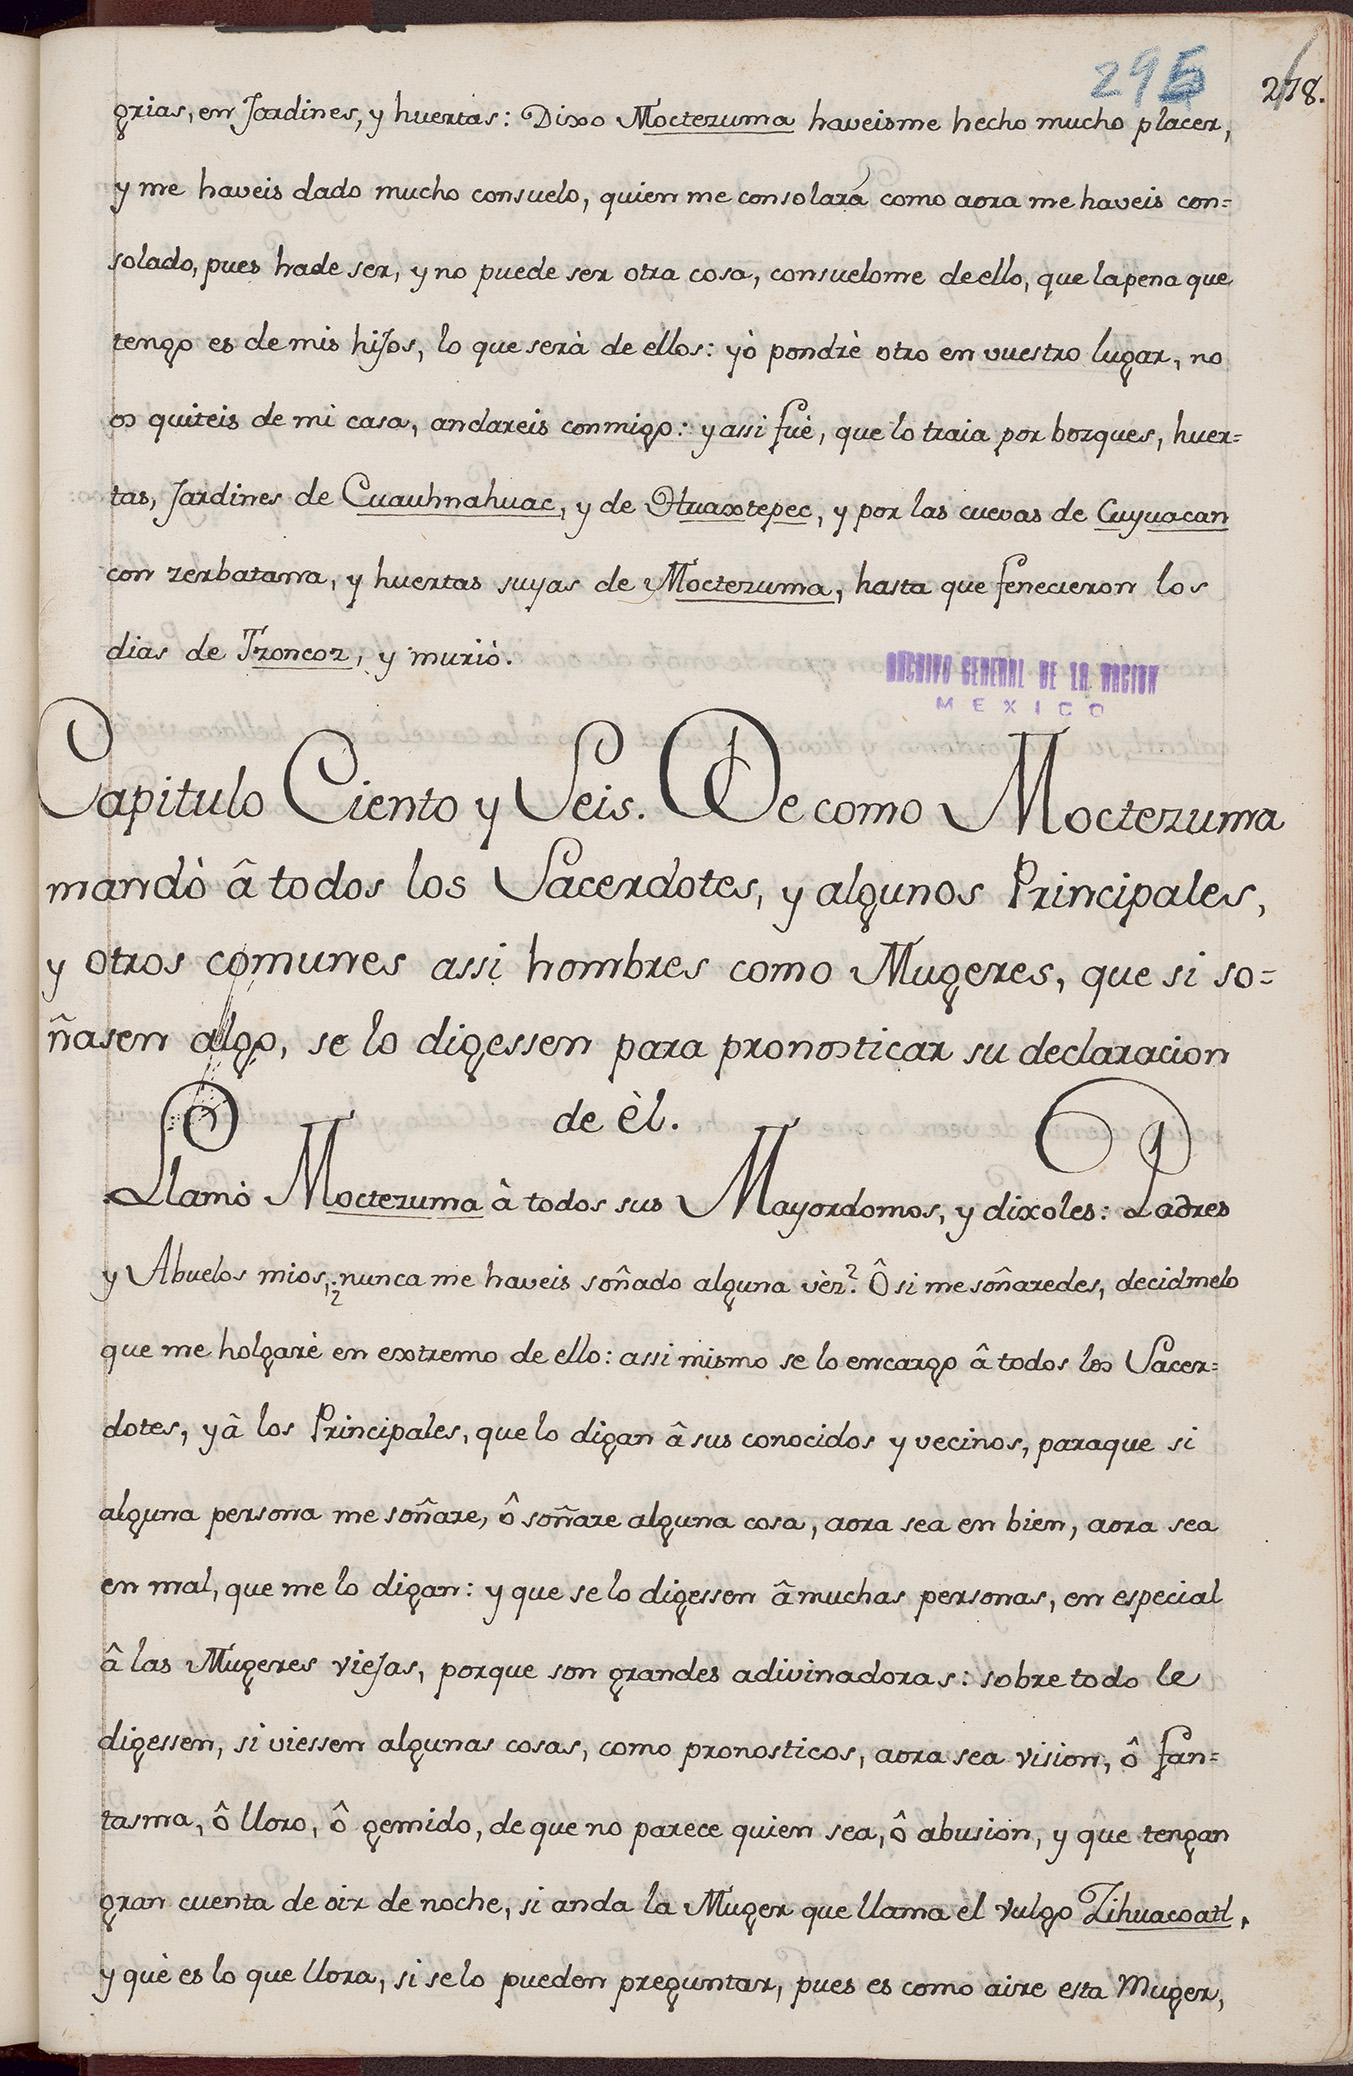 295
278.
grias, en Jardines, y huertas: Dixo Moctezuma haveisme hecho mucho placer,
y me haveis dado mucho consuelo, quien me consolará como aora me haveis con=
solado, pues hade ser, y no puede ser otra cosa, consuelome de ello, que la pena que
tengo es de mis hijos, lo que serà de ellos: yò pondrè otro en vuestro lugar, no
os quiteis de mi casa, andareis conmigo: y assi fuè, que lo traia por bozques, huer=
tas, Jardines de Cuauhnahuac, y de Huaxtepec, y por las cuevas de Cuyuacan
con zerbatana, y huertas suyas de Moctezuma, hasta que fenecieron los
dias de Tzoncoz, y murió.
ARCHIVO GENERAL DE LA NACION
MEXICO
Capitulo Ciento y Seis. De como Moctezuma
mandò â todos los Sacerdotes, y algunos Principales,
y otros comunes assi hombres como Mugeres, que si so=
ñasen algo, se lo digessen para pronosticar su declaracion
de èl.
Llamò Moctezuma à todos sus Mayordomos, y dixoles: Padres
y Abuelos mios, ¿nunca me haveis soñado alguna vèz? Ô si me soñaredes, decidmelo
que me holgarè en extremo de ello: assi mismo se lo encargo â todos los Sacer=
dotes, y â los Principales, que lo digan â sus conocidos y vecinos, paraque si
alguna persona me soñare, ô soñare alguna cosa, aora sea en bien, aora sea
en mal, que me lo digan: y que se lo digessen â muchas personas, en especial
â las Mugeres viejas, porque son grandes adivinadoras: sobre todo le
digessen, si viessen algunas cosas, como pronosticos, aora sea vision, ô fan=
tasma, ô lloro, ô gemido, de que no parece quien sea, ô abusion, y que tengan
gran cuenta de oir de noche, si anda la Muger que llama el vulgo Zihuacoatl,
y què es lo que llora, si se lo pueden preguntar, pues es como aire esta Muger,